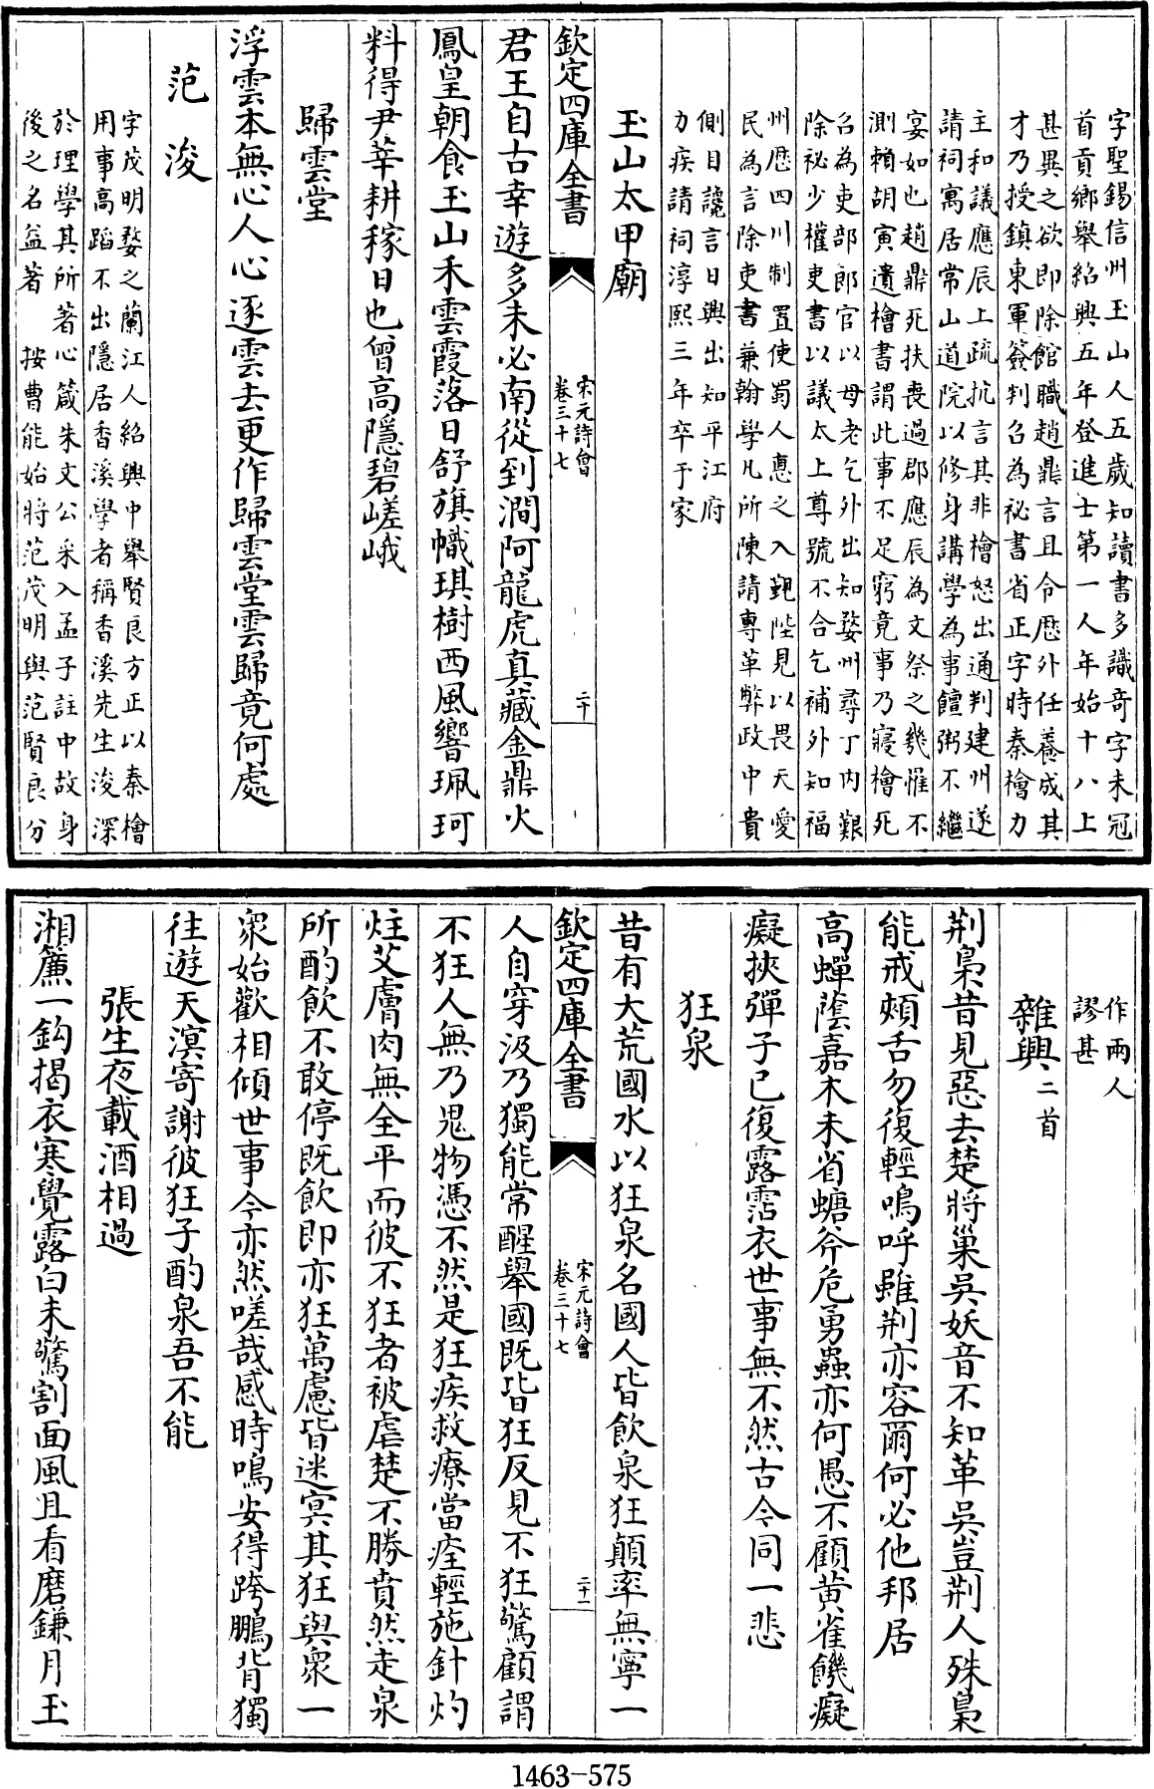 字聖錫信州玉山人五歲知讀書多識奇字未冠
首貢鄉舉紹興五年登進士第一人年始十八上
甚異之欲即除館職趙鼎言且令歷外任養成其
才乃授鎮東軍簽判召為祕書省正字時秦檜力
主和議應辰上疏抗言其非檜怒出通判建州遂
請祠寓居常山道院以修身講學為事饘粥不繼
宴如也趙鼎死扶喪過郡應辰為文祭之幾罹不
測賴胡寅遺檜書謂此事不足窮竟事乃寢檜死
召為吏部郎官以母老乞外出知婺州尋丁內艱
除祕少權吏書以議太上尊號不合乞補外知福
州歷四川制置使蜀人惪之入覲陛見以畏天愛
民為言除吏書兼翰學凡所陳請專革弊政中貴
側目讒言日興出知平江府
力疾請祠淳熙三年卒于家
玉山太甲廟
欽定四庫全書
宋元詩會
卷三十七
二十
君王自古幸遊多未必南從到澗阿龍虎真藏金鼎火
鳳皇朝食玉山禾雲霞落日舒旗幟琪樹西風響珮珂
料得尹莘耕稼日也曾高隱碧嵯峨
歸雲堂
浮雲本無心人心逐雲去更作歸雲堂雲歸竟何處
范浚
字茂明婺之蘭江人紹興中舉賢良方正以秦檜
用事高蹈不出隱居香溪學者稱香溪先生浚深
於理學其所著心箴朱文公采入孟子註中故身
後之名益著 按曹能始將范茂明與范賢良分
作兩人
謬甚
雜興二首
荆梟昔見惡去楚將巢吳妖音不知革吳豈荆人殊梟
能戒頰舌勿復輕鳴呼雖荆亦容爾何必他邦居
高蟬蔭嘉木未省螗斧危勇蟲亦何愚不顧黃雀饑癡
癡挾彈子已復露霑衣世事無不然古今同一悲
狂泉
昔有大荒國水以狂泉名國人皆飲泉狂顛率無寧一
欽定四庫全書
宋元詩會
卷三十七
二十一
人自穿汲乃獨能常醒舉國既皆狂反見不狂驚顧謂
不狂人無乃鬼物憑不然是狂疾救療當痊輕施針灼
炷艾膚肉無全平而彼不狂者被虐楚不勝賁然走泉
所酌飲不敢停既飲即亦狂萬慮皆迷冥其狂與衆一
衆始歡相傾世事今亦然嗟哉感時鳴安得跨鵬背獨
往遊天溟寄謝彼狂子酌泉吾不能
張生夜載酒相過
湘簾一鈎揭衣寒覺露白未驚割面風且看磨鎌月玉
1463-575